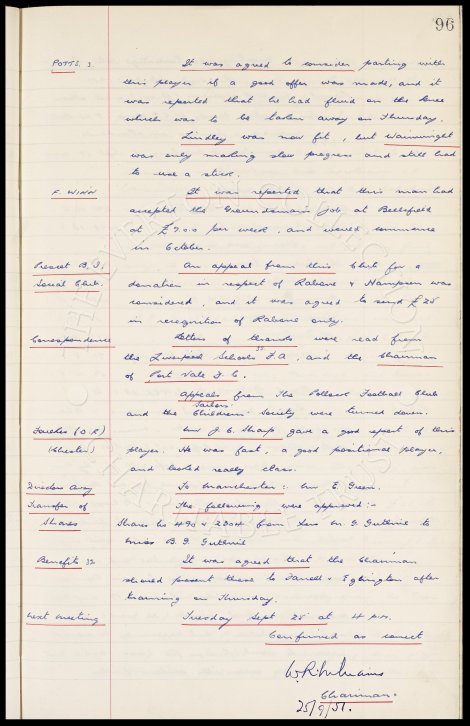 96
POTTS. 3. It was agreed to consider parting with
this player if a good offer was made, and it
was reported that he had fluid on the knee
which was to be taken away on Thursday.
Lindley was now fit, but Wainwright
was only making slow progress and still had
to use a stick.
F. WINN It was reported that this man had
accepted the Groundsman's job at Bellefield
at £7.0.0 per week, and would commence
in October.
Prescot B.I. An appeal from this Club for a
Social Club. donation in respect of Rabone & Hampson was
considered, and it was agreed to send £25
in recognition of Rabone only.
Correspondence Letters of thanks were read from
the Liverpool Schools F.A., and the Chairman
of Port Vale F.C. 33
Appeals from the Pollock Football Club
and the Sailors Childrens' Society were turned down.
(O.R) Mr J. C. Sharp gave a good report of this
(Chester) player. He was fast, a good positional player,
and looked really class.
Directors away To Manchester:- Mr E. Green.
Transfer of The following were approved:-
Shares Shares No 490 & 2304 from Guthrie to
Miss B. J. Guthrie
Benefits 32 It was agreed that the Chairman
should present these to Farrell & Eglington after
training on Thursday.
Next meeting Tuesday Sept 25 at 4 pm.
Confirmed as correct
W.R. Williams
Chairman.
25/9/51.